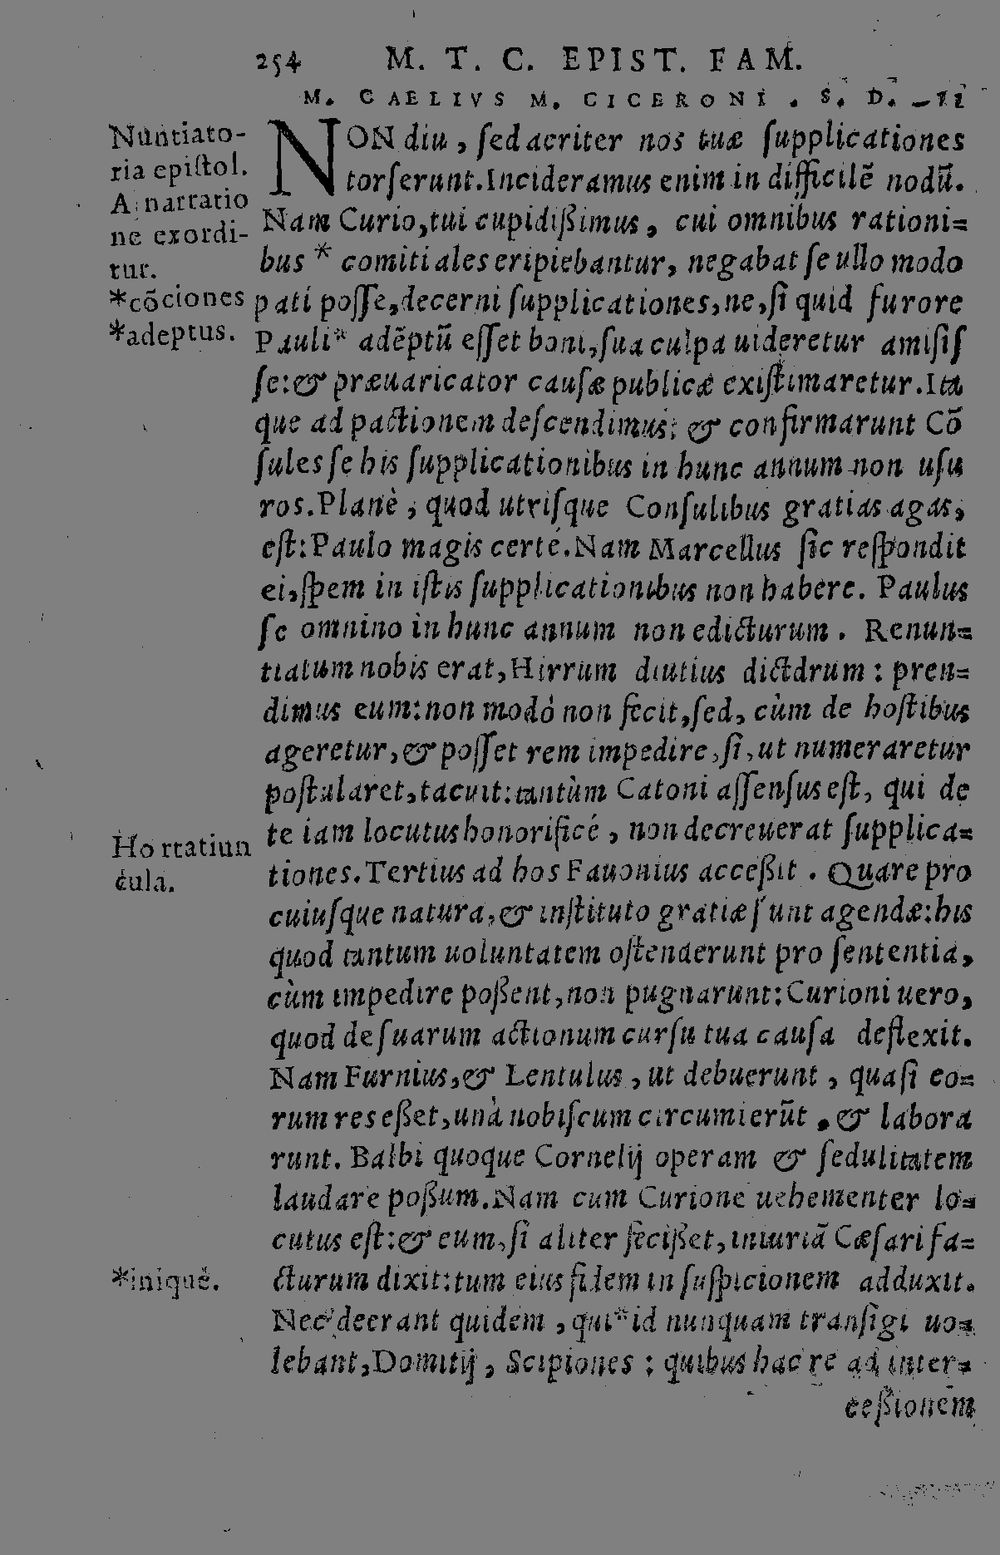 254 M. T. C. EPIST. FAM.
M. CAELIVS M. CICERONI. S. D.
Nuntiato-
ria epistol.
A narratio
ne exordi-
tur.
*cōciones
*adeptus.
NON diu, ſed acriter nos tuæ ſupplicationes
torſerunt. Incideramus enim in difficilē nodū.
Nam Curio, tui cupidißimus, cui omnibus rationi=
bus * comitiales eripiebantur, negabat ſe ullo modo
pati poſſe, decerni ſupplicationes, ne, ſi quid furore
Pauli* adēptū eſſet boni, ſua culpa uideretur amiſiſ
ſe: & præuaricator cauſæ publicæ exiſtimaretur. Ita
que ad pactionem deſcendimus: & confirmarunt Cō
ſules ſe his ſupplicationibus in hunc annum non uſu
ros. Planè, quod utriſque Conſulibus gratias agas,
eſt: Paulo magis certé. Nam Marcellus ſic reſpondit
ei, ſpem in iſtis ſupplicationibus non habere. Paulus
ſe omnino in hunc annum non edicturum. Renun=
tiatum nobis erat, Hirrum diutius dictdrum: pren=
dimus eum: non modò non fecit, ſed, cùm de hoſtibus
ageretur, & poſſet rem impedire, ſi, ut numeraretur
poſtularet, tacuit: tantùm Catoni aſſenſus eſt, qui de
te iam locutus honorificé, non decreuerat ſupplica=
tiones. Tertius ad hos Fauonius acceßit. Quare pro
cuiuſque natura, & inſtituto gratiæ ſunt agendæ: his
quod tantum uoluntatem oſtenderunt pro ſententia,
cùm impedire poßent, non pugnarunt: Curioni uero,
quod de ſuarum actionum curſu tua cauſa deflexit.
Nam Furnius, & Lentulus, ut debuerunt, quaſi eo=
rum res eßet, unà nobiſcum circumierūt, & labora
runt. Balbi quoque Cornelij operam & ſedulitatem
laudare poßum. Nam cum Curione uehementer lo=
cutus eſt: & eum, ſi aliter fecißet, iniuriā Cæſari fa=
cturum dixit: tum eius fidem in ſuſpicionem adduxit.
Nec deerant quidem, qui* id nunquam tranſigi uo=
lebant, Domitij, Scipiones: quibus hac re ad inter=
ceßionem
Hortatiun
cula.
*iniquè.